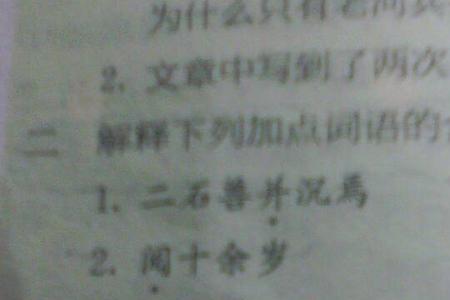 为什么只有老河兵
2. 文章中写到了两次
二 解释下列加点词语的
1. 二石兽并沉焉
2. 阅十余岁